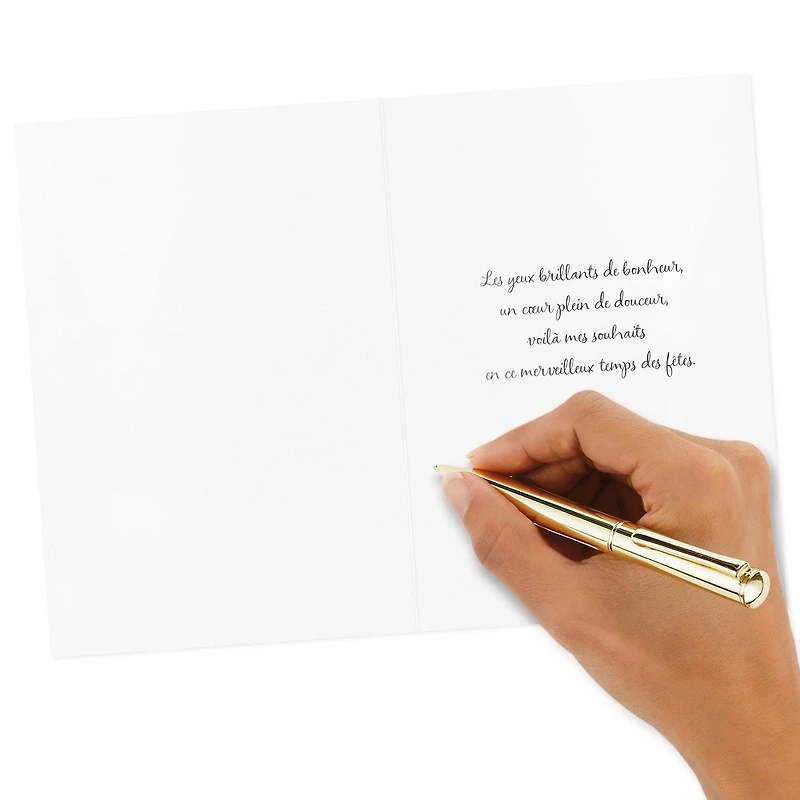 Les yeux brillants de bonheur,
un cœur plein de douceur,
voilà mes souhaits
en ce merveilleux temps des fêtes.